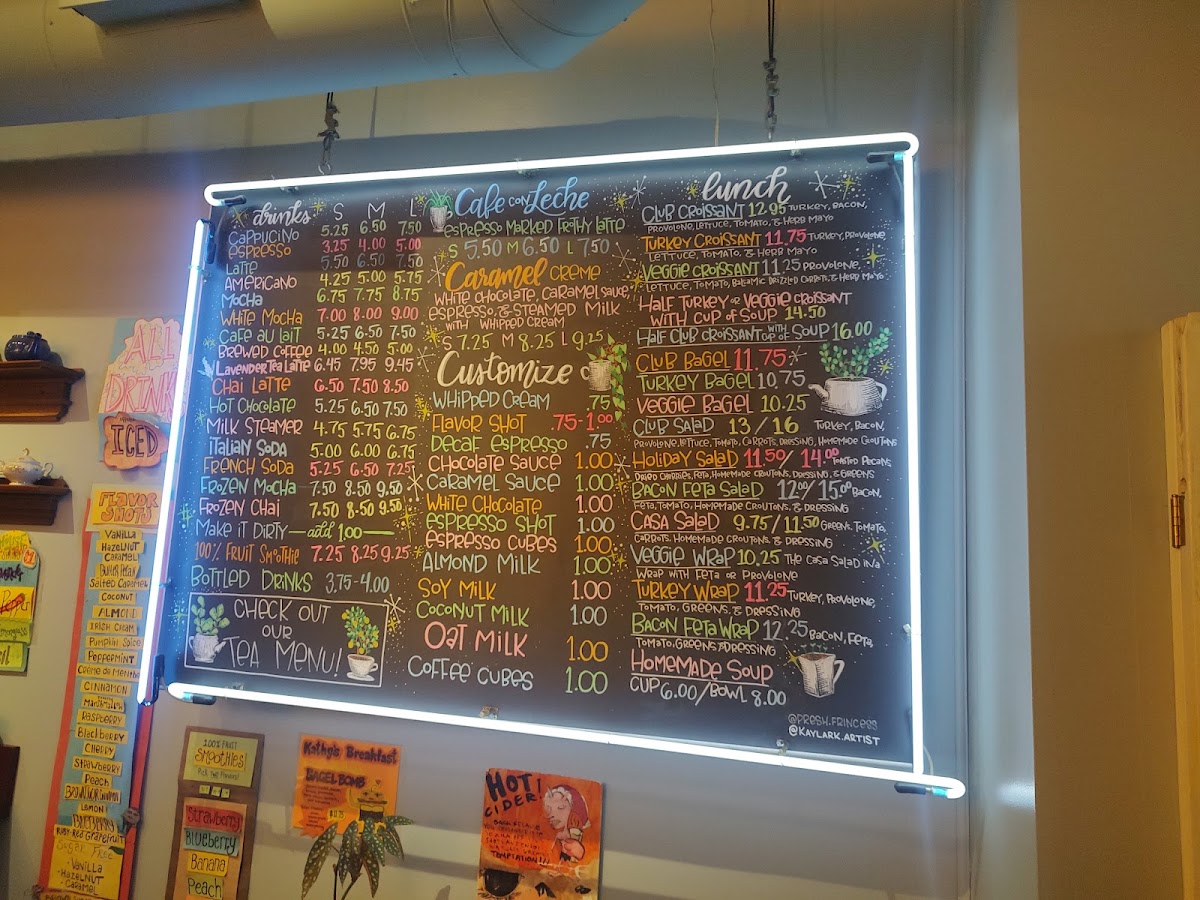 drinks S M L
CAPPUCINO 5.25 6.50 7.50
ESPRESSO 3.25 4.00 5.00
LATTE 5.50 6.50 7.50
AMERICANO 4.25 5.00 5.75
MOCHA 6.75 7.75 8.75
WHITE MOCHA 7.00 8.00 9.00
CAFE AU LAIT 5.25 6.50 7.50
BREWED COFFEE 4.00 4.50 5.00
LAVENDER TEA LATTE 6.45 7.95 9.45
CHAI LATTE 6.50 7.50 8.50
HOT CHOCOLATE 5.25 6.50 7.50
MILK STEAMER 4.75 5.75 6.75
ITALIAN SODA 5.00 6.00 6.75
FRENCH SODA 5.25 6.50 7.25
FROZEN MOCHA 7.50 8.50 9.50
FROZEN CHAI 7.50 8.50 9.50
MAKE IT DIRTY — add 1.00
100% FRUIT SMOTHIE 7.25 8.25 9.25
BOTTLED DRINKS 3.75-4.00
CHECK OUT
OUR
TEA MENU!
Cafe con Leche
ESPRESSO MARKED FROTHY LATTE
S 5.50 M 6.50 L 7.50
Caramel CREME
WHITE CHOCOLATE, CARAMEL SAUCE,
ESPRESSO, & STEAMED MILK
WITH WHIPPED CREAM
S 7.25 M 8.25 L 9.25
Customize
WHIPPED CREAM .75
FLAVOR SHOT .75-1.00
DECAF ESPRESSO .75
CHOCOLATE SAUCE 1.00
CARAMEL SAUCE 1.00
WHITE CHOCOLATE 1.00
ESPRESSO SHOT 1.00
ESPRESSO CUBES 1.00
ALMOND MILK 1.00
SOY MILK 1.00
COCONUT MILK 1.00
OAT MILK 1.00
COFFEE CUBES 1.00
lunch
CLUB CROISSANT 12.95 TURKEY, BACON,
PROVOLONE, LETTUCE, TOMATO, & HERB MAYO
TURKEY CROISSANT 11.75 TURKEY, PROVOLONE,
LETTUCE, TOMATO, & HERB MAYO
VEGGIE CROISSANT 11.25 PROVOLONE,
LETTUCE, TOMATO, BALSAMIC DRIZZLED CARROTS, & HERB MAYO
HALF TURKEY or VEGGIE CROISSANT
WITH CUP OF SOUP 14.50
HALF CLUB CROISSANT WITH CUP OF SOUP 16.00
CLUB BAGEL 11.75
TURKEY BAGEL 10.75
VEGGIE BAGEL 10.25
CLUB SALAD 13 / 16 TURKEY, BACON,
PROVOLONE, LETTUCE, TOMATO, CARROTS, DRESSING, HOMEMADE CROUTONS
HOLIDAY SALAD 11.50 / 14.00 TOASTED PECANS,
DRIED CHERRIES, FETA, HOMEMADE CROUTONS, DRESSING, & GREENS
BACON FETA SALAD 12.00 / 15.00 BACON,
FETA, TOMATO, HOMEMADE CROUTONS, & DRESSING
CASA SALAD 9.75 / 11.50 GREENS, TOMATO,
CARROTS, HOMEMADE CROUTONS, & DRESSING
VEGGIE WRAP 10.25 THE CASA SALAD IN A
WRAP WITH FETA OR PROVOLONE
TURKEY WRAP 11.25 TURKEY, PROVOLONE,
TOMATO, GREENS, & DRESSING
BACON FETA WRAP 12.25 BACON, FETA,
TOMATO, GREENS & DRESSING
HOMEMADE SOUP
CUP 6.00 / BOWL 8.00
@PRESH.FRINCESS
@KAYLARK.ARTIST
ALL
DRINKS
ICED
FLAVOR
SHOTS
VANILLA
HAZELNUT
CARAMEL
BUTTER PECAN
SALTED CARAMEL
COCONUT
ALMOND
IRISH CREAM
PUMPKIN SPICE
PEPPERMINT
CREME DE MENTHE
CINNAMON
MARSHMALLOW
RASPBERRY
BLACKBERRY
CHERRY
STRAWBERRY
PEACH
BROWN SUGAR CINNAMON
LEMON
BLUEBERRY
RUBY RED GRAPEFRUIT
SUGAR FREE
- VANILLA
- HAZELNUT
- CARAMEL
100% FRUIT
SMOOTHIES!
Pick two flavors!
Strawberry
Blueberry
Banana
Peach
Kathy's Breakfast
BAGEL BOMB
HOT!
CIDER
TEMPTATION!!!